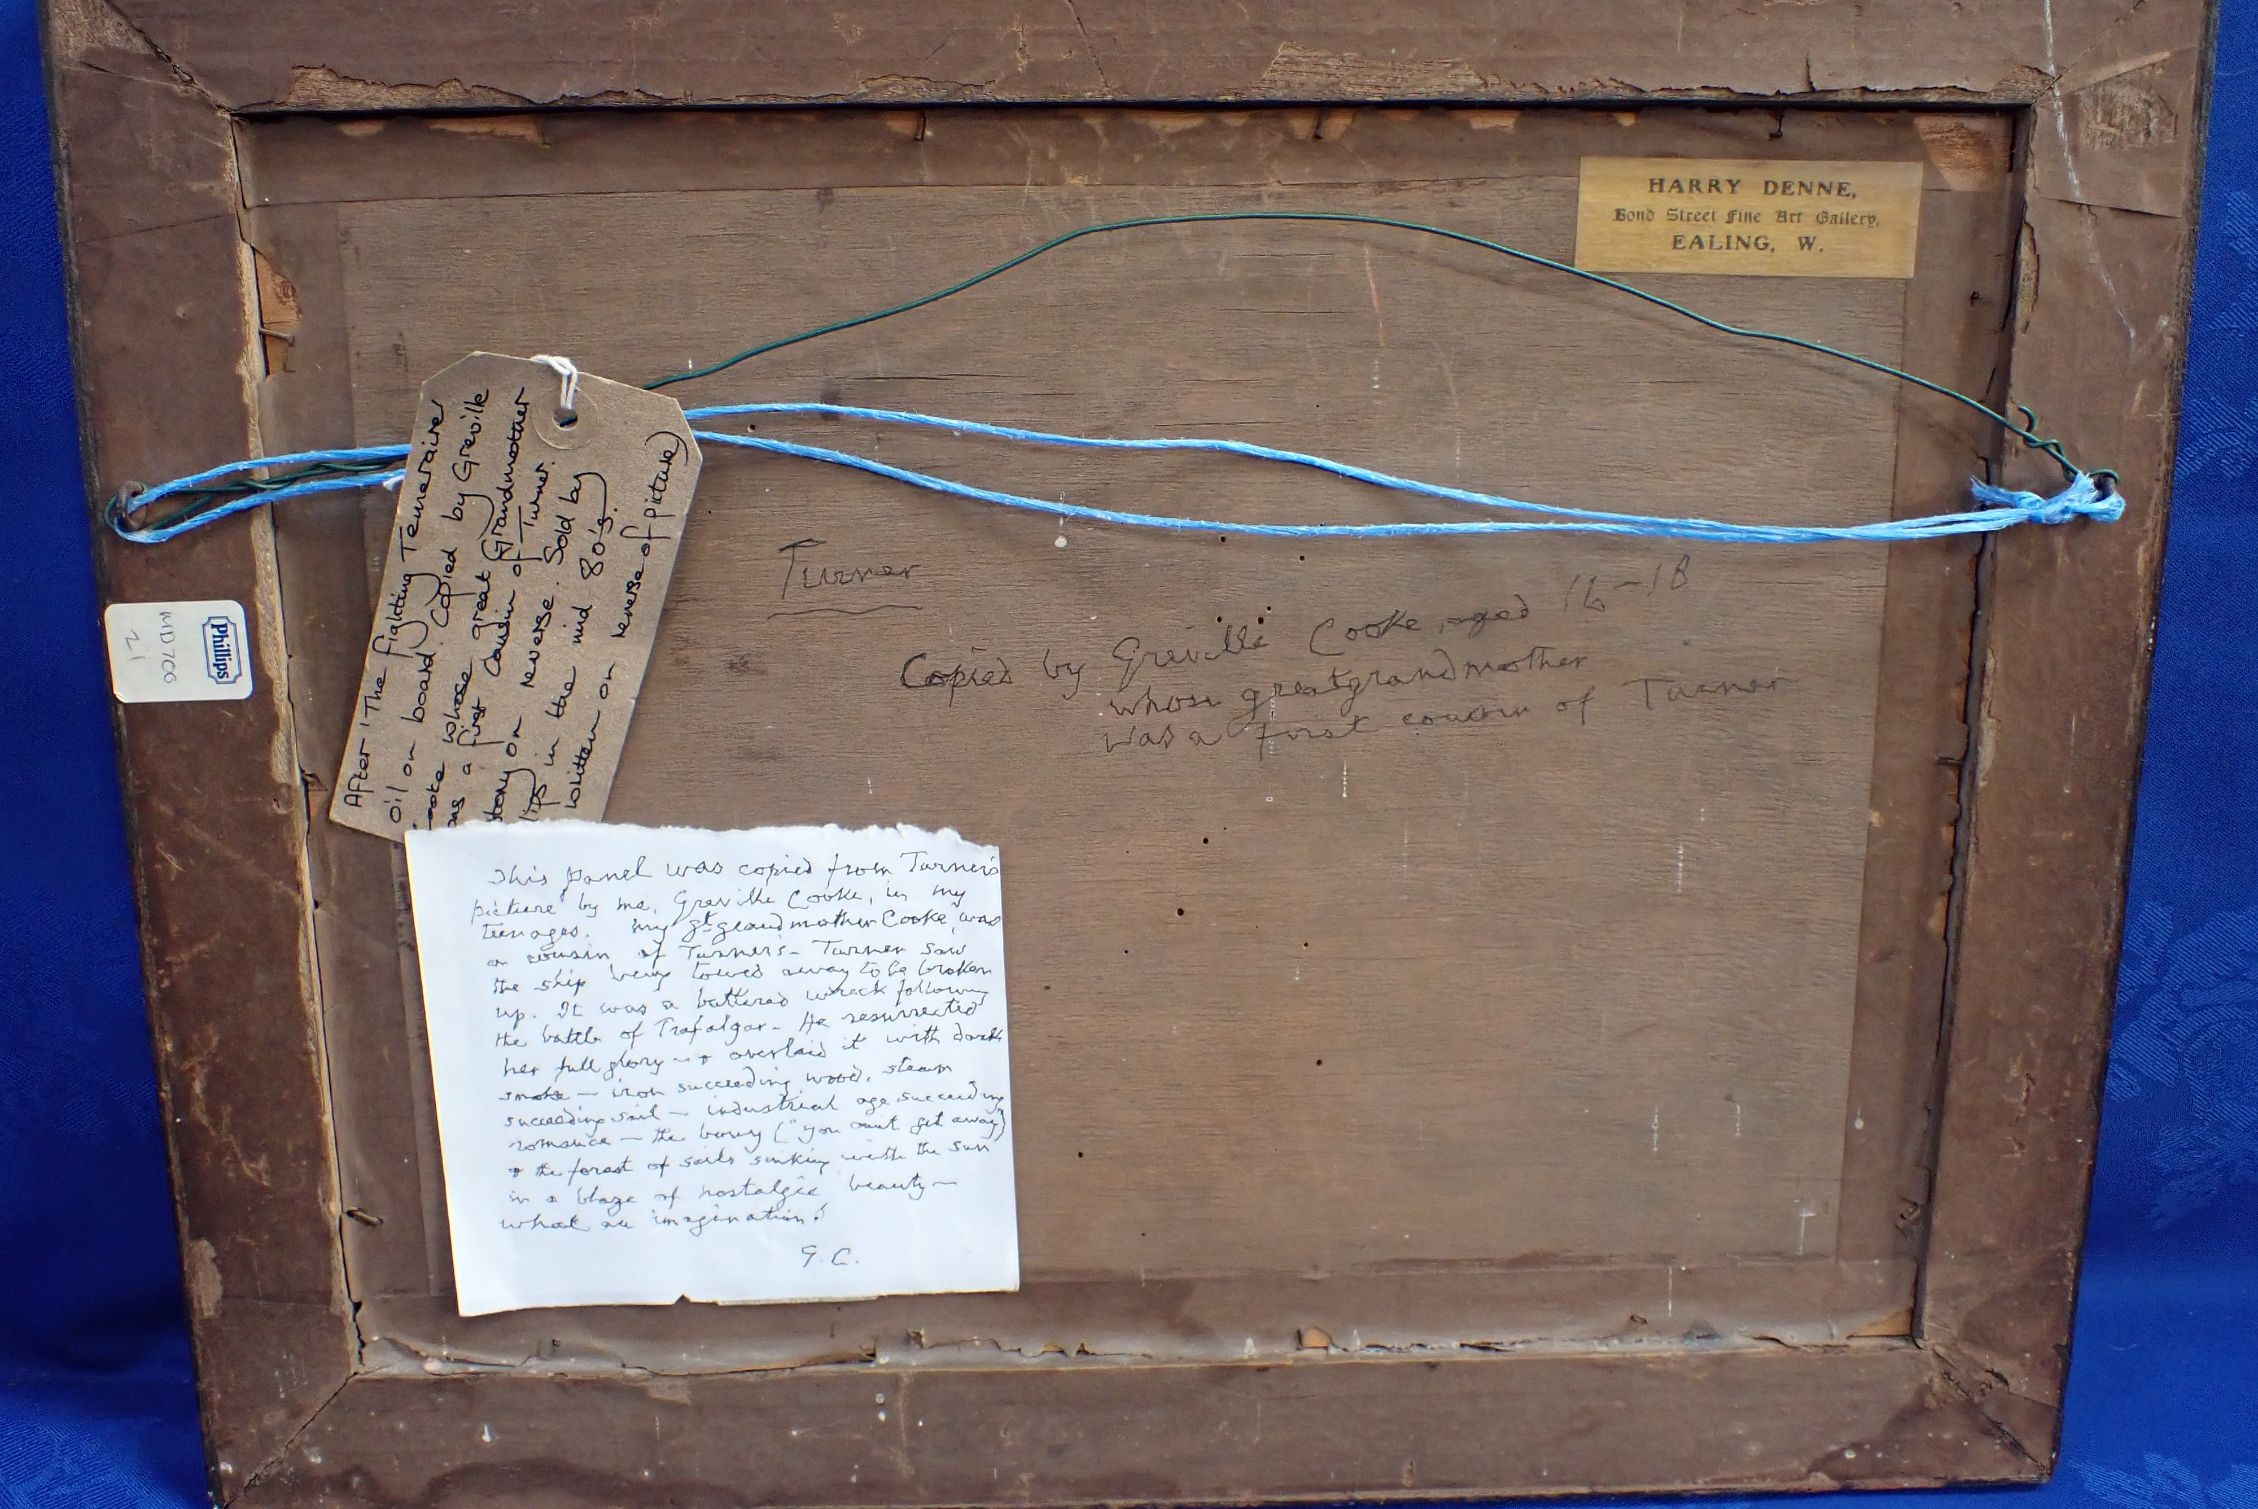 HARRY DENNE,
Bond Street Fine Art Gallery,
EALING, W.
After 'The fighting Temeraire'
oil on board. Copied by Greville
Cooke whose great Grandmother
was a first cousin of Turner.
story on reverse. Sold by
lips in the mid 80's.
written on reverse of picture)
Turner
Copied by Greville Cooke, aged 16-18
whose greatgrandmother
was a first cousin of Turner
Phillips
MD706
21
This panel was copied from Turner's
picture by me, Greville Cooke, in my
teenages. My gt. grandmother Cooke was
a cousin of Turner's - Turner saw
the ship being towed away to be broken
up. It was a battered wreck following
the battle of Trafalgar - He resurrected
her full glory - & overlaid it with dark
smoke - iron succeeding wood, steam
succeeding sail - industrial age succeeding
romance - the ("you can't get away")
& the forest of sails sinking with the sun
in a blaze of nostalgic beauty -
what an imagination!
G.C.